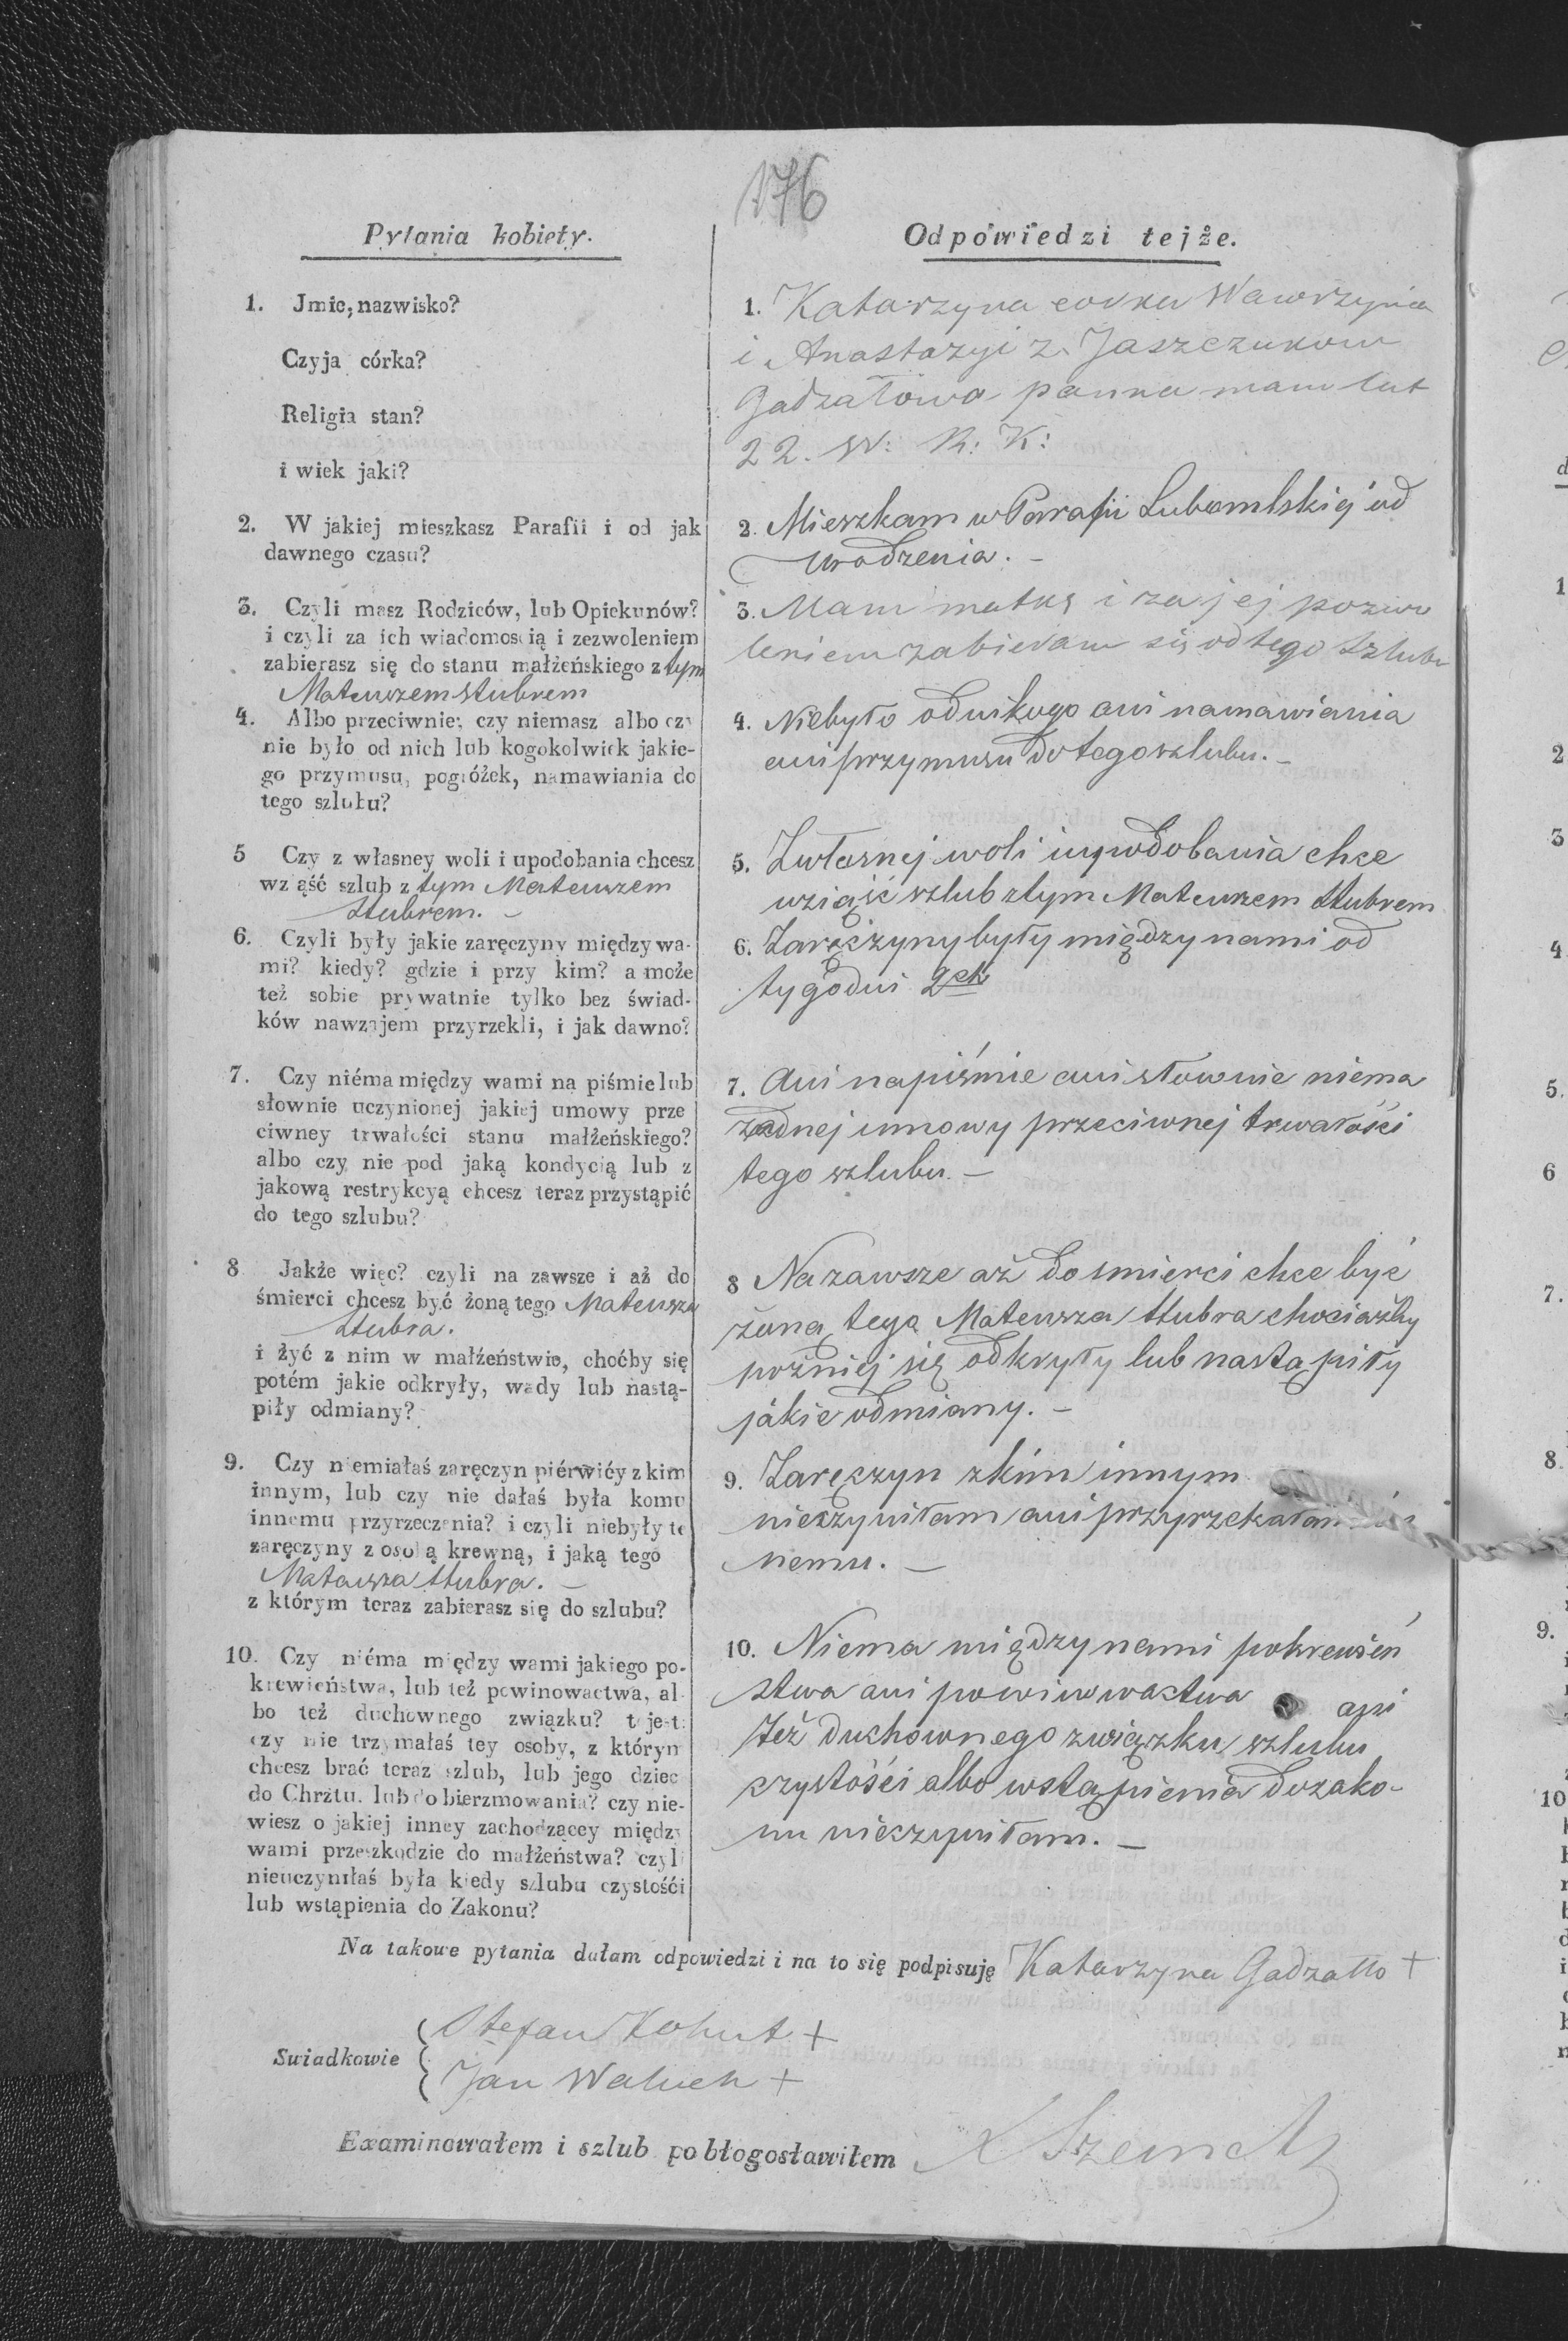 176
Pytania kobiety.
1. Jmie, nazwisko?
Czyja córka?
Religia stan?
i wiek jaki?
2. W jakiej mieszkasz Parafii i od jak
dawnego czasu?
3. Czyli masz Rodziców, lub Opiekunów?
i czyli za ich wiadomością i zezwoleniem
zabierasz się do stanu małżeńskiego z tym
Mateuszem Stubrem
4. Albo przeciwnie: czy niemasz albo czy
nie było od nich lub kogokolwiek jakie-
go przymusu, pogróżek, namawiania do
tego szlubu?
5 Czy z własney woli i upodobania chcesz
wziąść szlub z tym Mateuszem
Stubrem. –
6. Czyli były jakie zaręczyny między wa-
mi? kiedy? gdzie i przy kim? a może
też sobie prywatnie tylko bez świad-
ków nawzajem przyrzekli, i jak dawno?
7. Czy niéma między wami na piśmie lub
słownie uczynionej jakiej umowy prze
ciwney trwałości stanu małżeńskiego?
albo czy nie pod jaką kondycią lub z
jakową restrykcyą chcesz teraz przystąpić
do tego szlubu?
8 Jakże więc? czyli na zawsze i aż do
śmierci chcesz być żoną tego Mateusza
Stubra.
i żyć z nim w małżeństwie, choćby się
potém jakie odkryły, wady lub nastą-
piły odmiany?
9. Czy niemiałaś zaręczyn piérwićy z kim
innym, lub czy nie dałaś była komu
innemu przyrzeczenia? i czyli niebyły te
zaręczyny z osobą krewną, i jaką tego
Mateusza Stubra. –
z którym teraz zabierasz się do szlubu?
10. Czy niéma między wami jakiego po-
krewieństwa, lub też powinowactwa, al-
bo też duchownego związku? to jest:
czy nie trzymałaś tey osoby, z którym
chcesz brać teraz szlub, lub jego dziec
do Chrztu. lub do bierzmowania? czy nie-
wiesz o jakiej inney zachodzącey między
wami przeszkodzie do małżeństwa? czyli
nieuczyniłaś była kiedy szlubu czystości
lub wstąpienia do Zakonu?
Odpowiedzi tejże.
1. Katarzyna corka Wawrzyńca
i Anastazyi z Jaszczukow
Gadzałowa panna mam lat
22. W: R: K:
2. Mieszkam w Parafii Lubomlskiej od
urodzenia. –
3. Mam matkę i za jej pozwo
leniem zabieram się od tego szlubu
4. Niebyło od nikogo ani namawiania
ani przymusu do tego szlubu. –
5. Zwłasnej woli i upodobania chce
wziąść szlub z tym Mateuszem Stubrem
6. Zaręczyny były między nami od
tygodni 2ch
7. Ani na piśmie ani słownie niema
żadnej umowy przeciwnej trwałości
tego szlubu. –
8 Na zawsze aż do smierci chce być
żoną tego Mateusza Stubra chociażby
poźniej się odkryły lub nastąpiły
jakie odmiany. –
9. Zaręczyn z kim innym
nieczyniłam ani przyrzekałam
nemu. –
10. Niema między nami pokrewień
stwa ani powinowactwa ani
też duchownego związku szlubu
czystości albo wstąpienia do zako-
nu nieczyniłam. –
Na takowe pytania dałam odpowiedzi i na to się podpisuję Katarzyna Gadzałło +
Swiadkowie Stefan Kohut +
Jan Waluch +
Examinowałem i szlub pobłogosławiłem